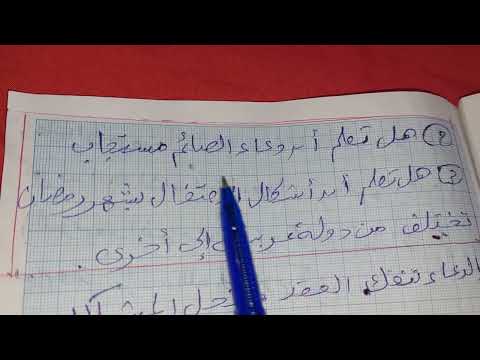 ② هل تعلم أن دعاء الصائم مستجاب
③ هل تعلم أن أشكال الاحتفال بشهر رمضان
تختلف من دولة عربية إلى أخرى.
الدعاء تنفك العقد